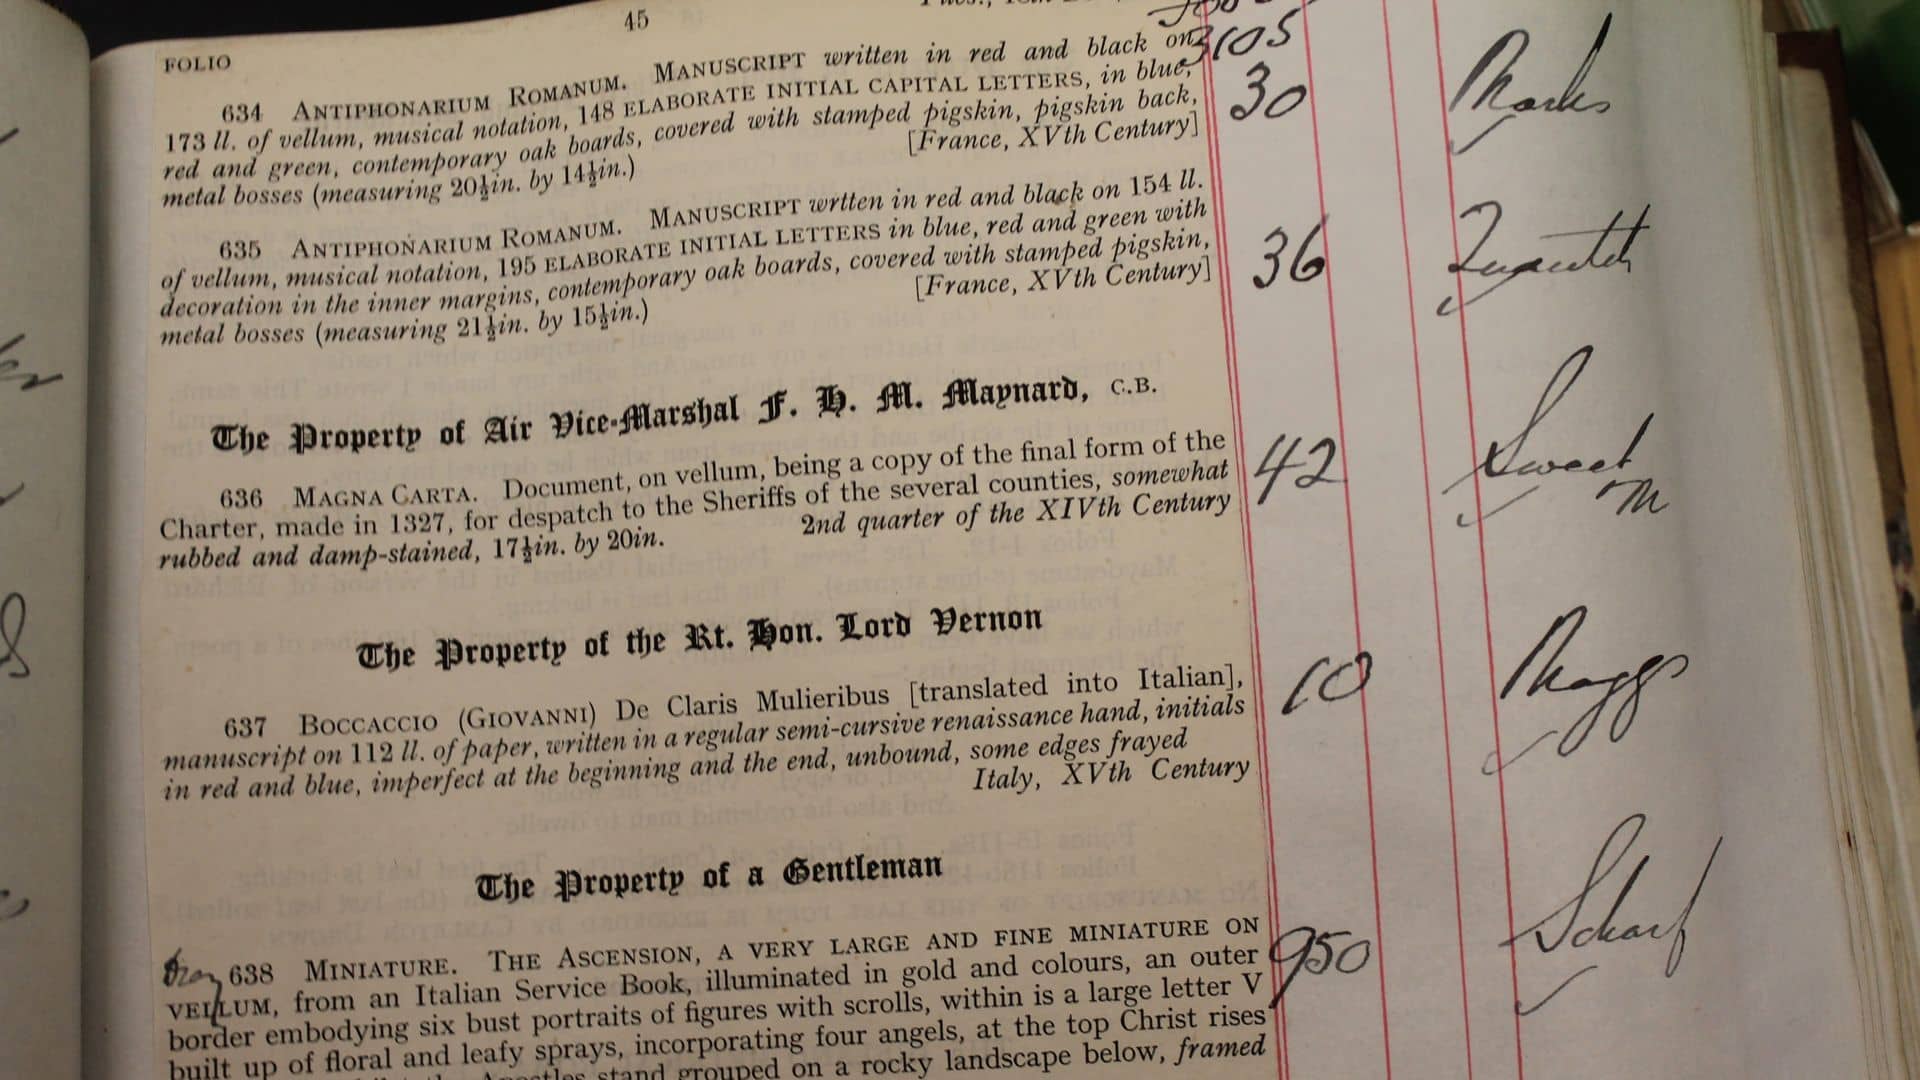 45
FOLIO
634 ANTIPHONARIUM ROMANUM. MANUSCRIPT written in red and black on
173 ll. of vellum, musical notation, 148 ELABORATE INITIAL CAPITAL LETTERS, in blue,
red and green, contemporary oak boards, covered with stamped pigskin, pigskin back,
metal bosses (measuring 20½in. by 14½in.)
[France, XVth Century]
3105
30
Marks
635 ANTIPHONARIUM ROMANUM. MANUSCRIPT wrtten in red and black on 154 ll.
of vellum, musical notation, 195 ELABORATE INITIAL LETTERS in blue, red and green with
decoration in the inner margins, contemporary oak boards, covered with stamped pigskin,
metal bosses (measuring 21½in. by 15½in.)
[France, XVth Century]
36
The Property of Air Vice-Marshal F. H. M. Maynard, C.B.
636 MAGNA CARTA. Document, on vellum, being a copy of the final form of the
Charter, made in 1327, for despatch to the Sheriffs of the several counties, somewhat
rubbed and damp-stained, 17½in. by 20in.
2nd quarter of the XIVth Century
42
Sweet
M
The Property of the Rt. Hon. Lord Vernon
637 BOCCACCIO (GIOVANNI) De Claris Mulieribus [translated into Italian],
manuscript on 112 ll. of paper, written in a regular semi-cursive renaissance hand, initials
in red and blue, imperfect at the beginning and the end, unbound, some edges frayed
Italy, XVth Century
10
Maggs
The Property of a Gentleman
638 MINIATURE. THE ASCENSION, A VERY LARGE AND FINE MINIATURE ON
VELLUM, from an Italian Service Book, illuminated in gold and colours, an outer
border embodying six bust portraits of figures with scrolls, within is a large letter V
built up of floral and leafy sprays, incorporating four angels, at the top Christ rises
stand grouped on a rocky landscape below, framed
950
Scharf